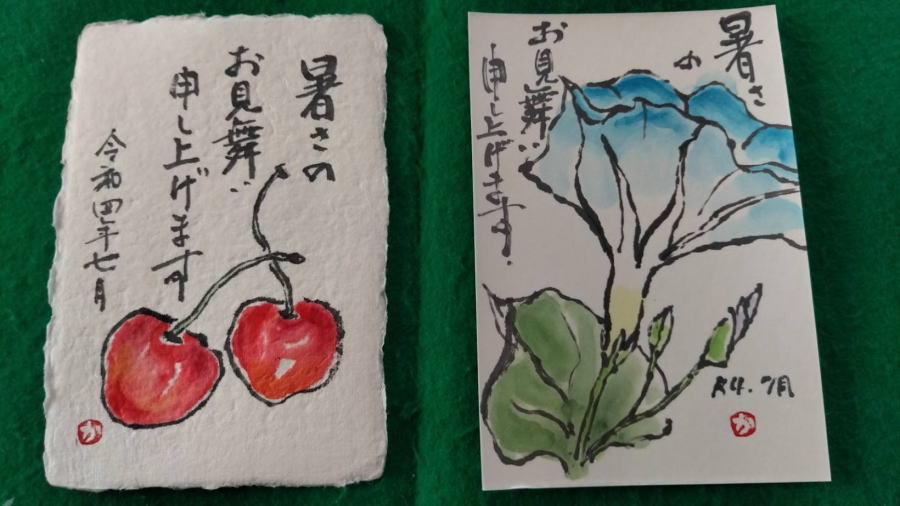 暑さの
お見舞い
申し上げます
令和四年七月
か
暑さ
の
お見舞い
申し上げます。
R4.7月
か